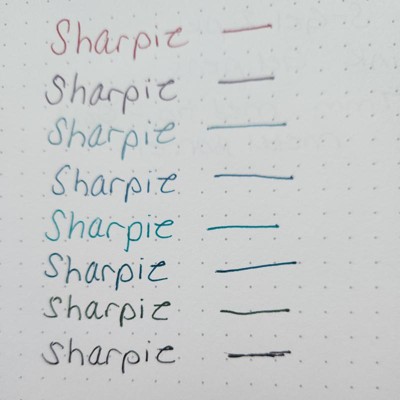 Sharpie
Sharpie
Sharpie
Sharpie
Sharpie
Sharpie
Sharpie
Sharpie